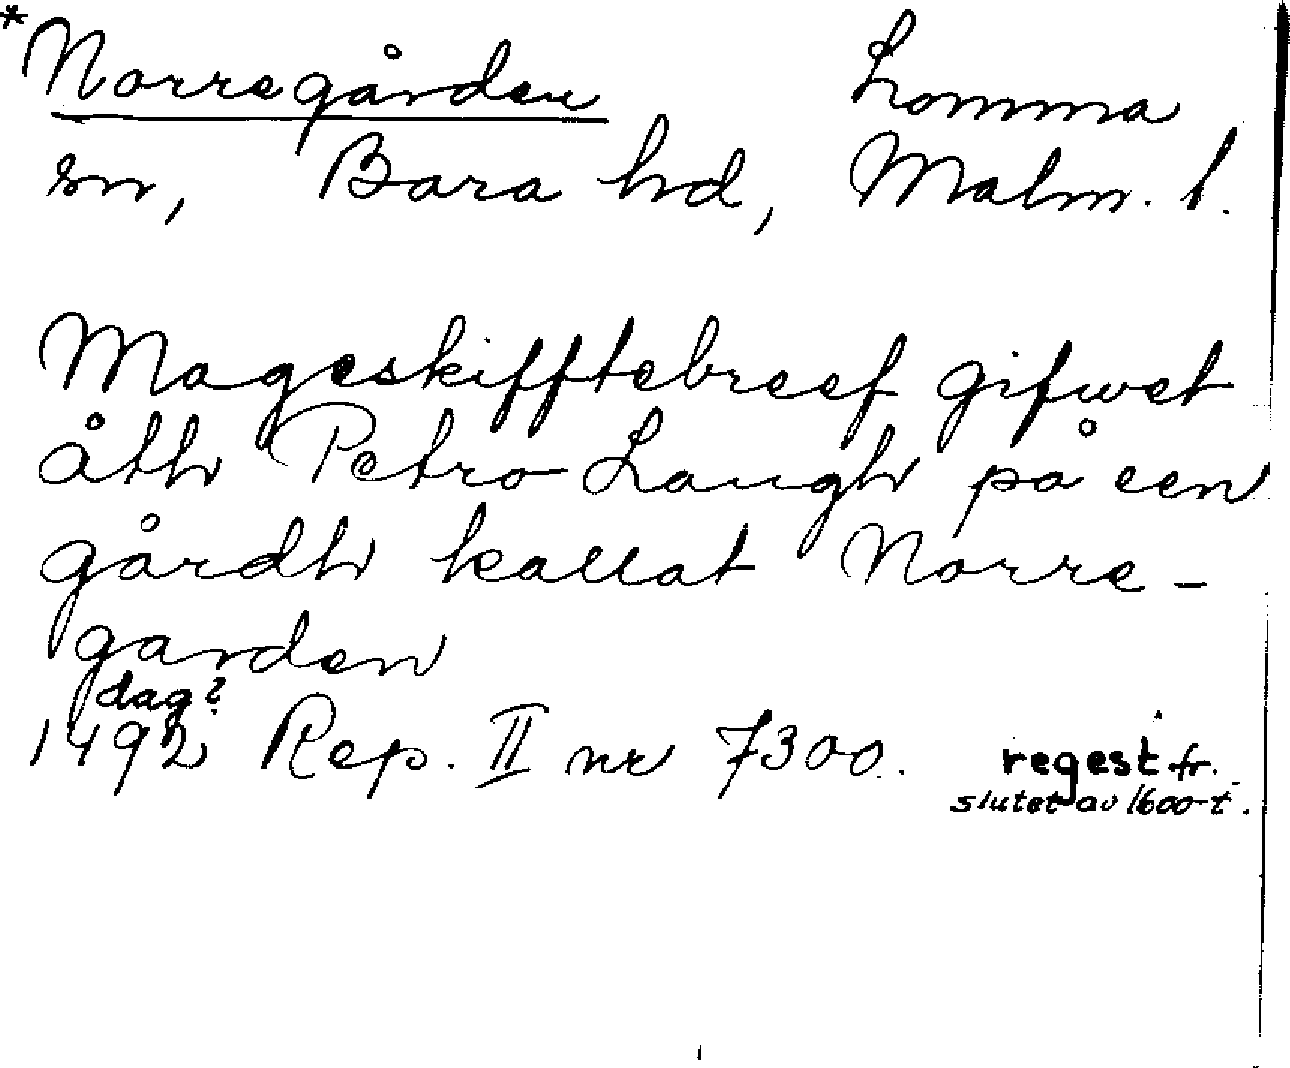 *Norregården Lomma
sn, Bara hd, Malm. l.
Mageskifftebreef gifwet
åth Petro Laugh på een
gårdh kallat Norre-
garden
dag?
1492 Rep. II nr 7300. regest fr.
slutet av 1600-t.